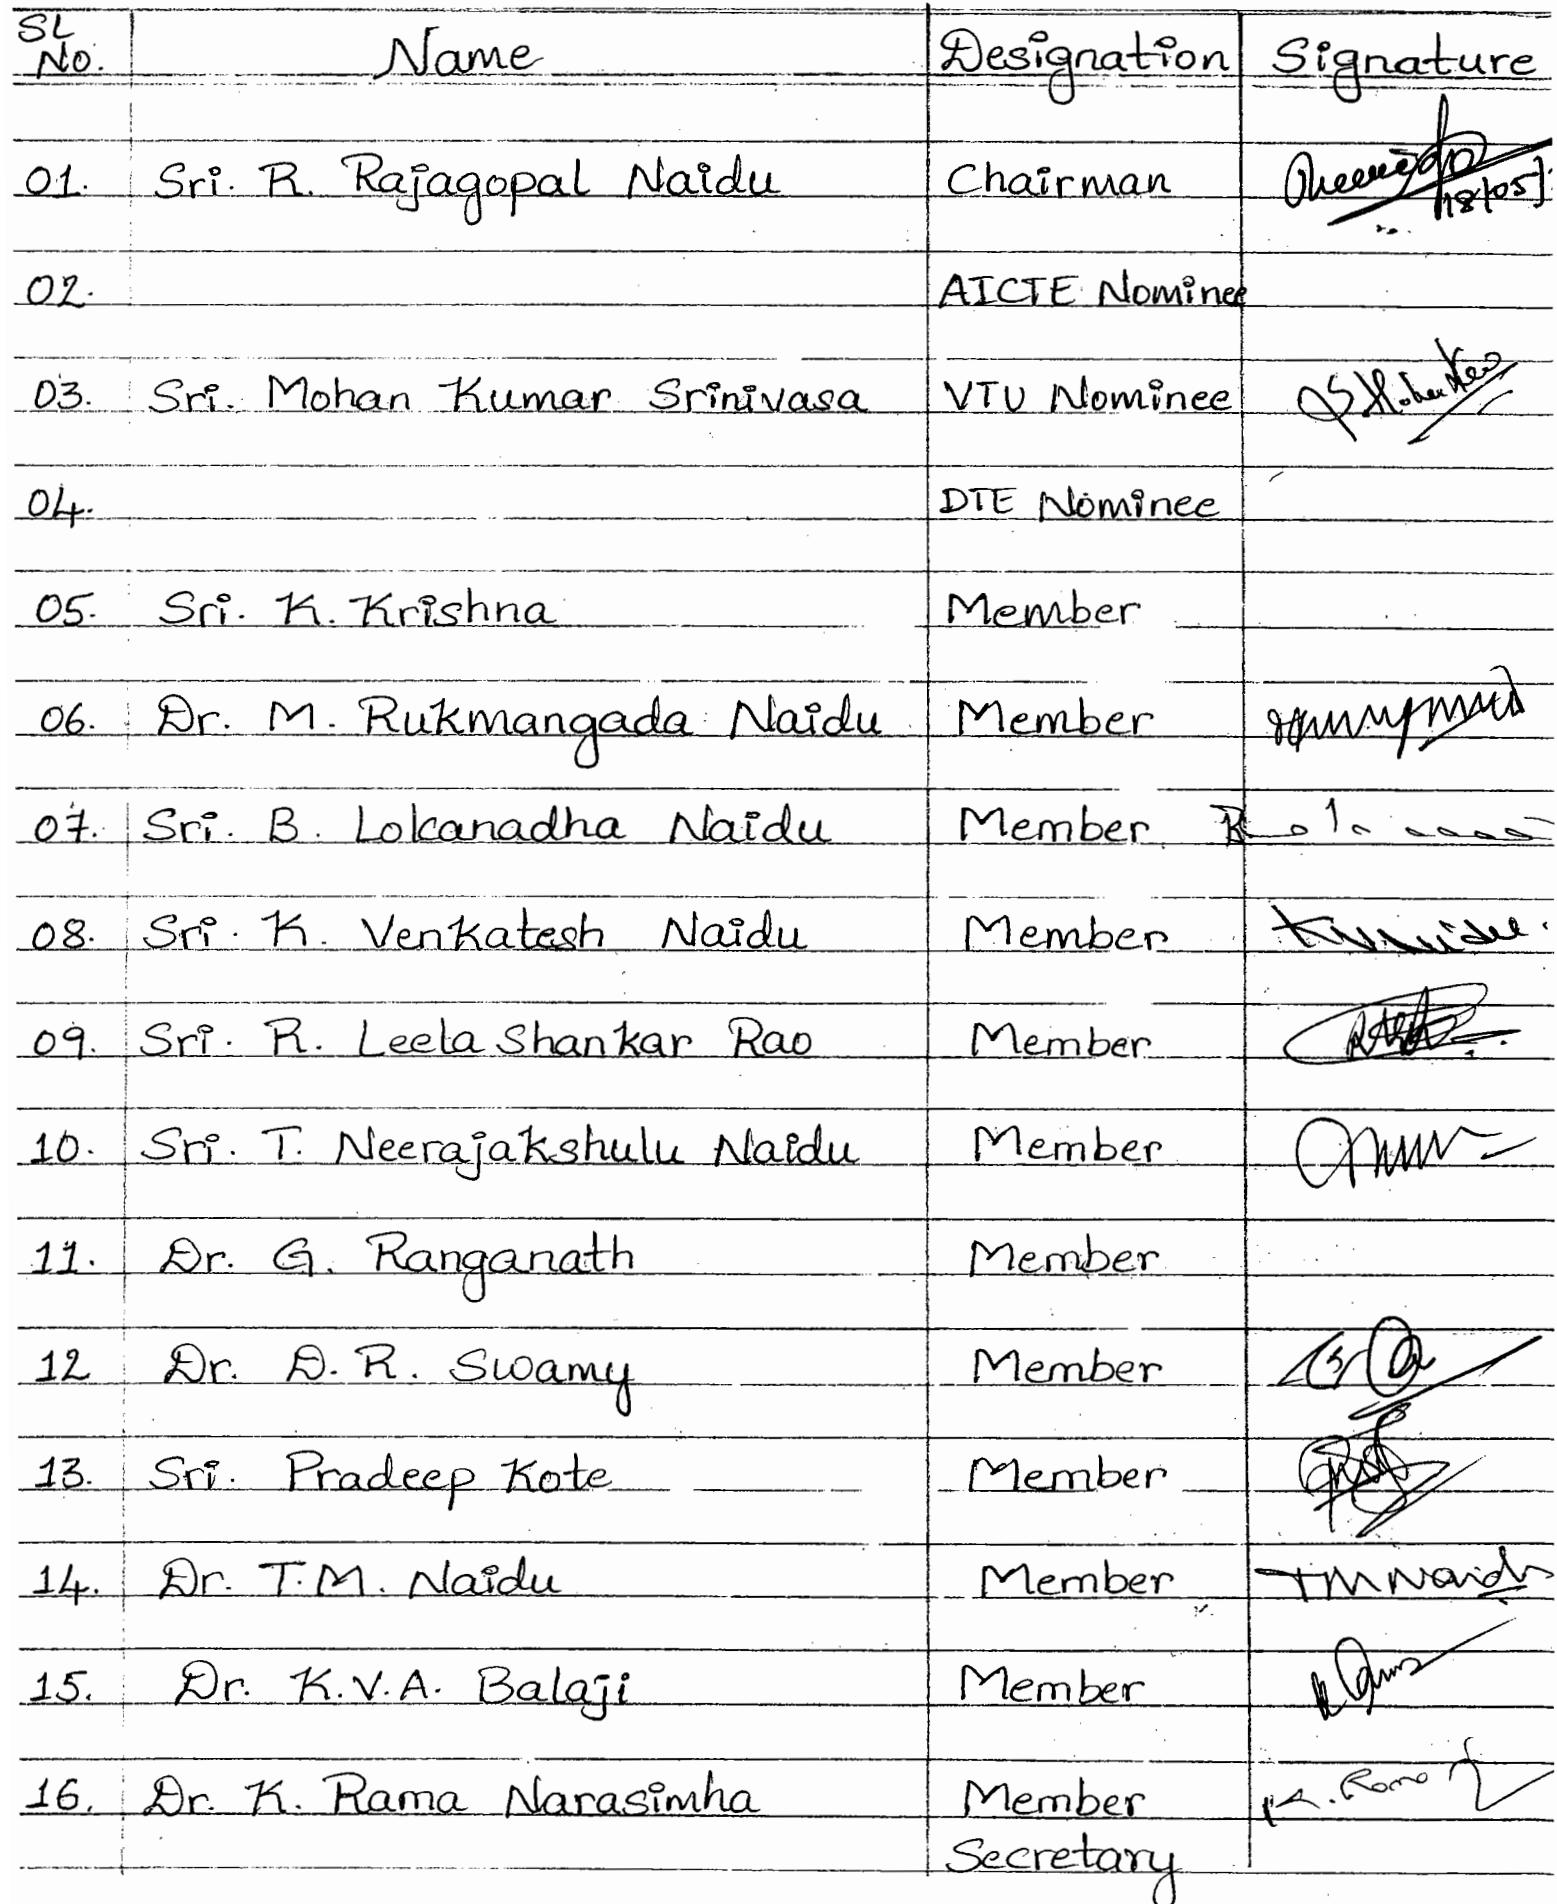 SL No. Name Designation Signature
01. Sri. R. Rajagopal Naidu Chairman 18/05
02. AICTE Nominee
03. Sri. Mohan Kumar Srinivasa VTU Nominee
04. DTE Nominee
05. Sri. K. Krishna Member
06. Dr. M. Rukmangada Naidu Member
07. Sri. B. Lokanadha Naidu Member
08. Sri. K. Venkatesh Naidu Member
09. Sri. R. Leela Shankar Rao Member
10. Sri. T. Neerajakshulu Naidu Member
11. Dr. G. Ranganath Member
12 Dr. D. R. Swamy Member
13. Sri. Pradeep Kote Member
14. Dr. T.M. Naidu Member TM Naidu
15. Dr. K.V.A. Balaji Member
16. Dr. K. Rama Narasimha Member K. Rama
Secretary